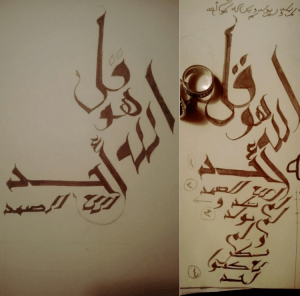 قل
هو
الله
أحد
الله الصمد
قل
هو
الله
أحد
الله الصمد
لم يلد و
لم يولد
و لم
يكن
له كفوا
أحد